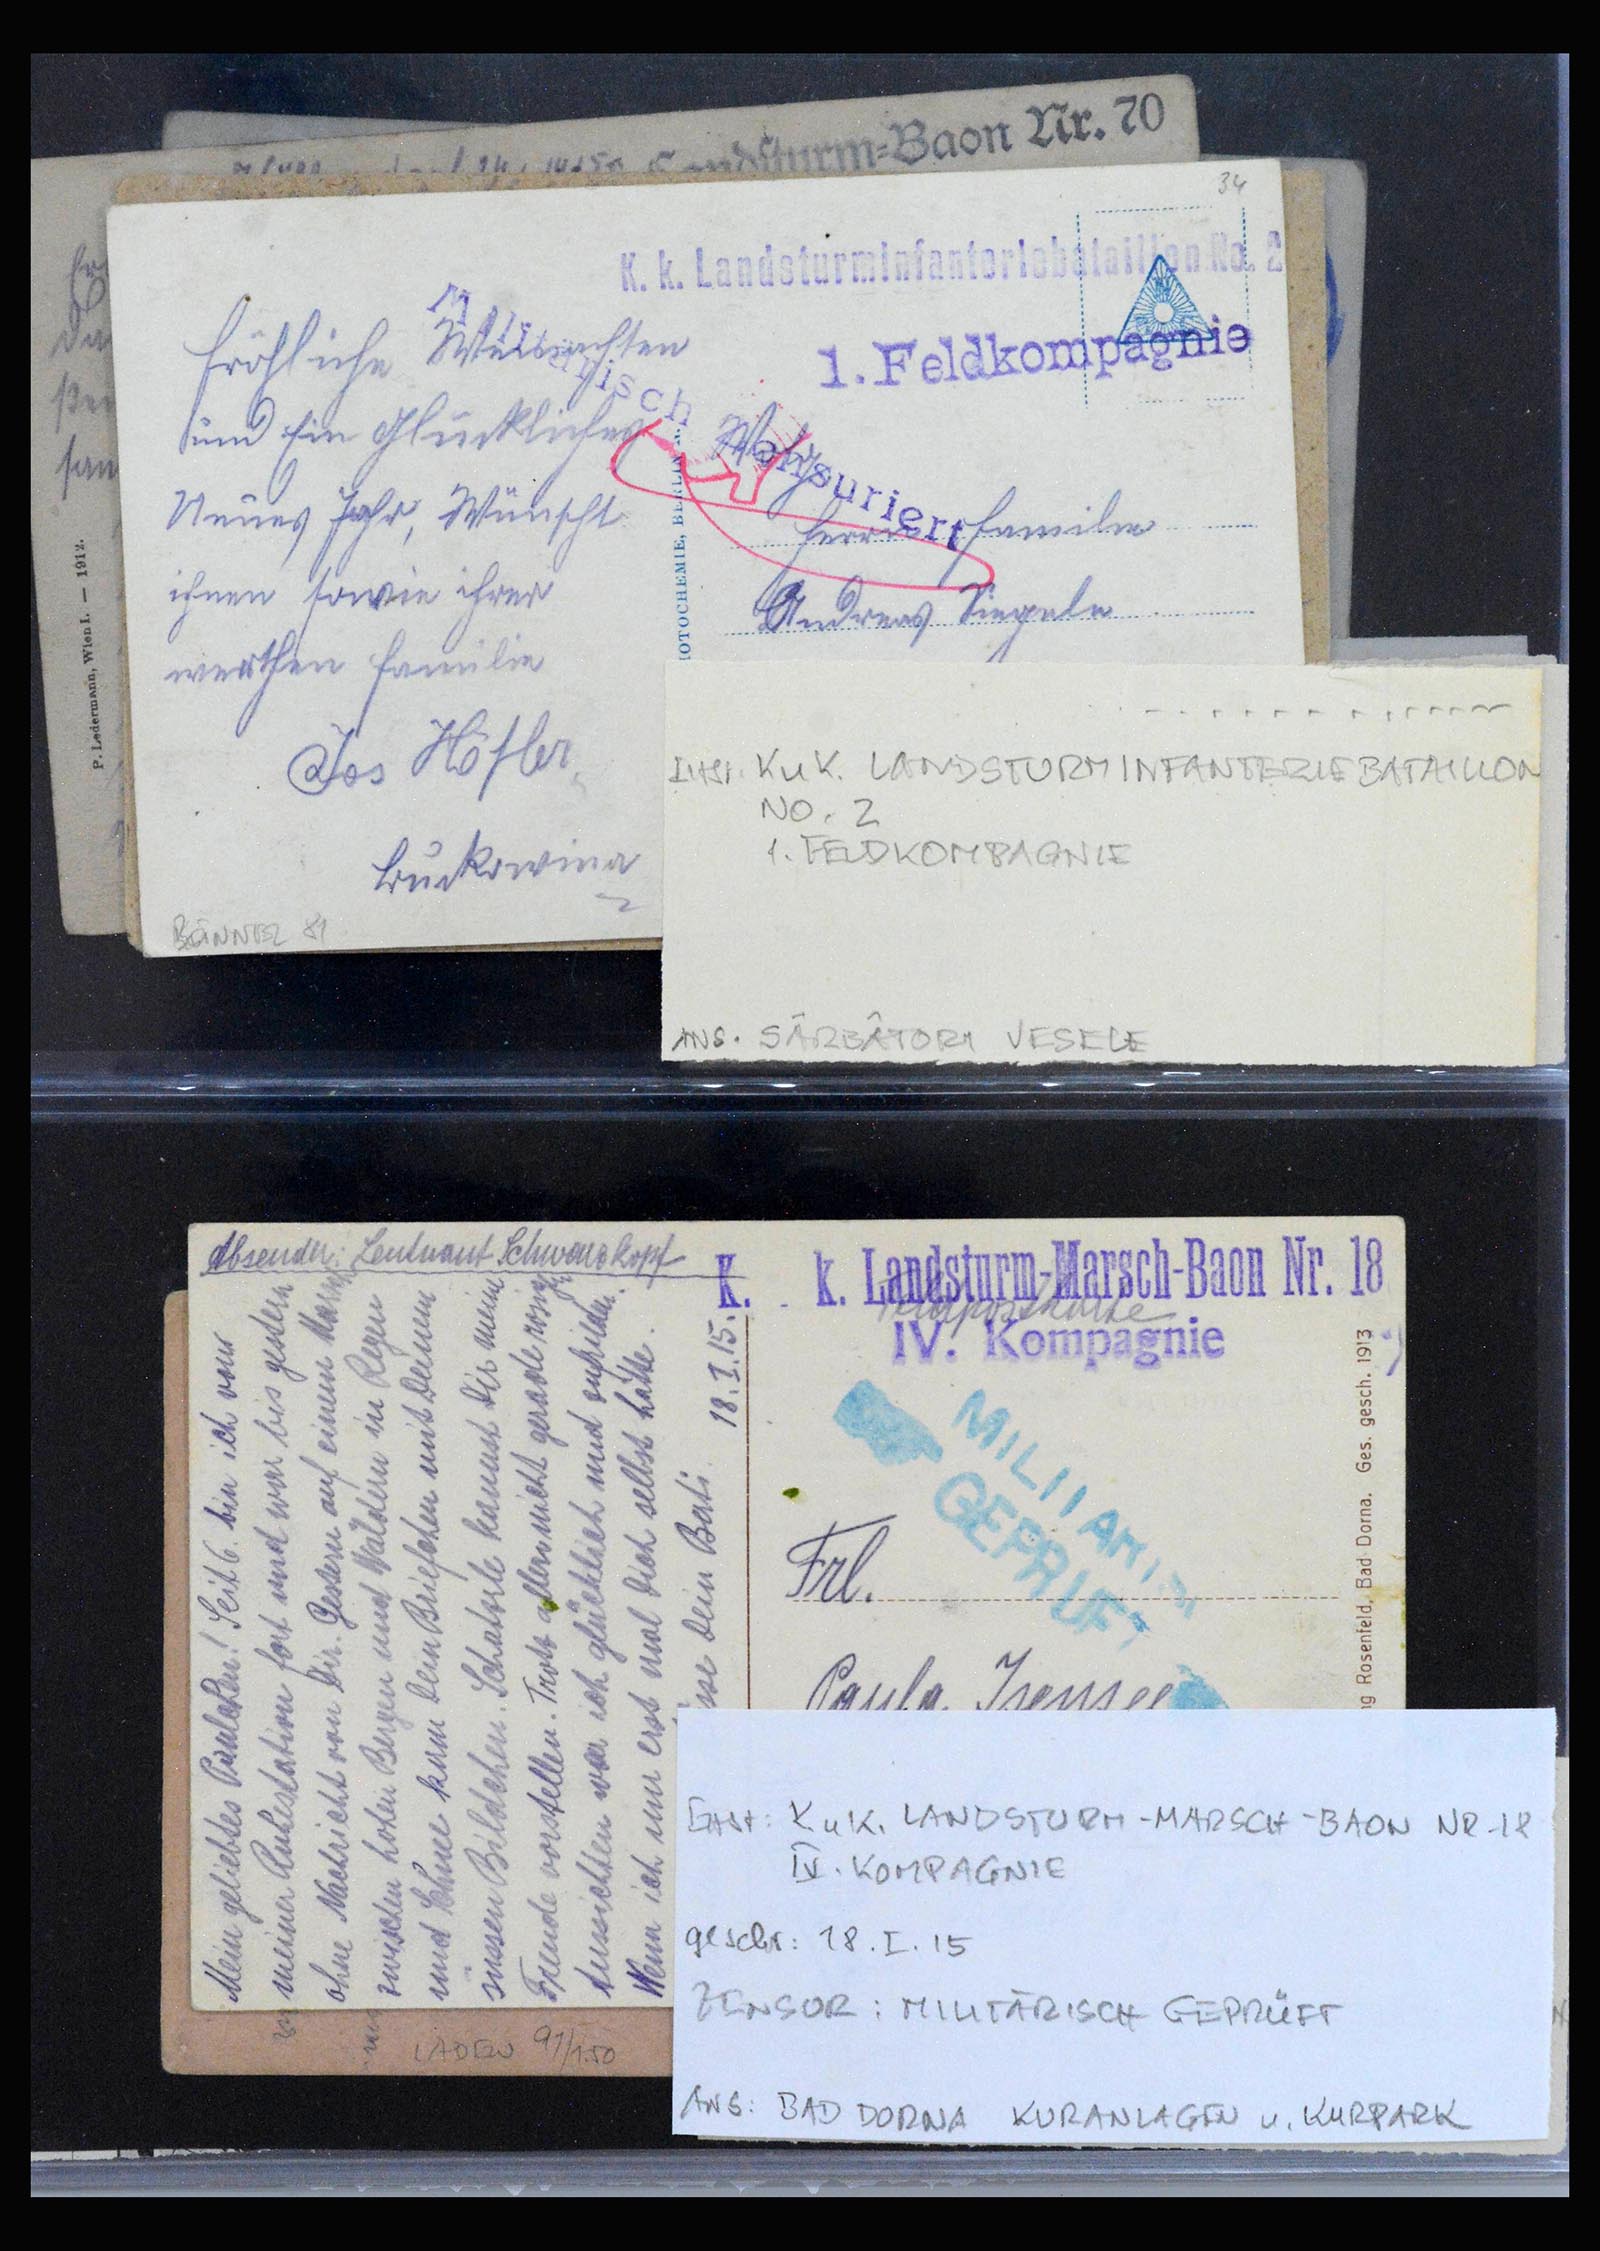 Landsturm=Baon Nr. 70
34
K. k. Landsturminfanteriebataillon No. 2
1. Feldkompagnie
Militärisch zensuriert
Fröhliche Weihnachten
und Ein Glückliches
Neues Jahr, Wünscht
ihnen sowie ihrer
werthen Familie
Jos Höfler
Buckowina
Familie
Andreas Siegele
OTOCHEMIE, BERLIN
P. Ledermann, Wien I. — 1912.
BÖNNTEL 81
KuK. LANDSTURMINFANTERIEBATAILLON
NO. 2
1. FELDKOMPAGNIE
ANS. SĂRBĂTORI VESELE
Absender: Leutnant Schwarzkopf
K. k. Landsturm-Marsch-Baon Nr. 18
Feldpostkarte
IV. Kompagnie
MILITÄRISCH
GEPRÜFT
18.I.15.
Mein geliebtes Paulchen! Seit 6. bin ich von
meiner Ruhestation fort und war bis gestern
ohne Nachricht von Dir. Gestern auf einem Marsch
zwischen hohen Bergen und Wäldern in Regen
und Schnee kam Dein Briefchen mit Deinem
süssen Bildchen. Schatzerle kannst Dir meine
Freude vorstellen. Trotz allem nicht gerade rosigen
Aussichten war ich glücklich und zufrieden.
Wenn ich nur erst mal Dich selbst hätte.
Dein Berti
Frl.
Paula Isensee
ng Rosenfeld, Bad Dorna. Ges. gesch. 1913
LADEN 91/1.50
KuK. LANDSTURM-MARSCH-BAON NR.18
IV. KOMPAGNIE
geschr: 18.I.15
ZENSUR: MILITÄRISCH GEPRÜFT
ANS: BAD DORNA KURANLAGEN u. KURPARK